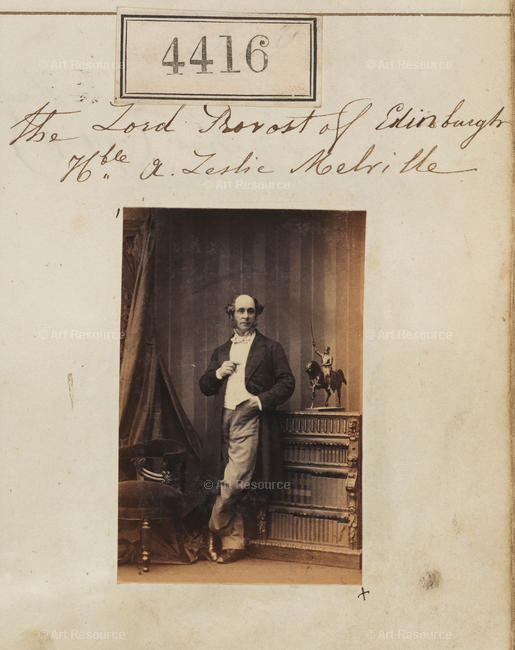 4416
the Lord Provost of Edinburgh
Hble A. Leslie Melville
x
© Art Resource
© Art Resource
© Art Resource
© Art Resource
© Art Resource
© Art Resource
© Art Resource
© Art Resource
© Art Resource